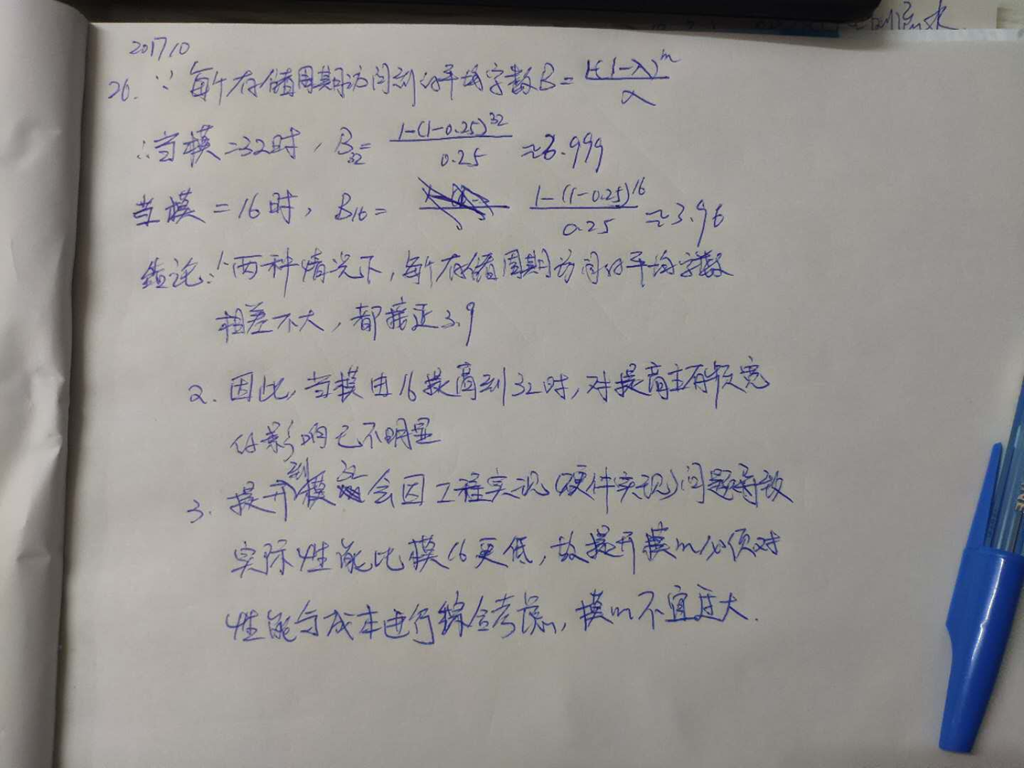 2017.10
26. ∵每个存储周期访问到的平均字数B=\frac{1-(1-λ)^m}{λ}
∴当模=32时，B_{32}=\frac{1-(1-0.25)^{32}}{0.25}≈3.999
当模=16时，B_{16}=\frac{1-(1-0.25)^{16}}{0.25}≈3.96
结论：1.两种情况下，每个存储周期访问的平均字数
相差不大，都接近3.9
2. 因此，当模由16提高到32时，对提高主存频宽
的影响已不明显
3. 提升到模32会因工程实现(硬件实现)问题导致
实际性能比模16更低，故提升模m必须对
性能与成本进行综合考虑，模m不宜过大.